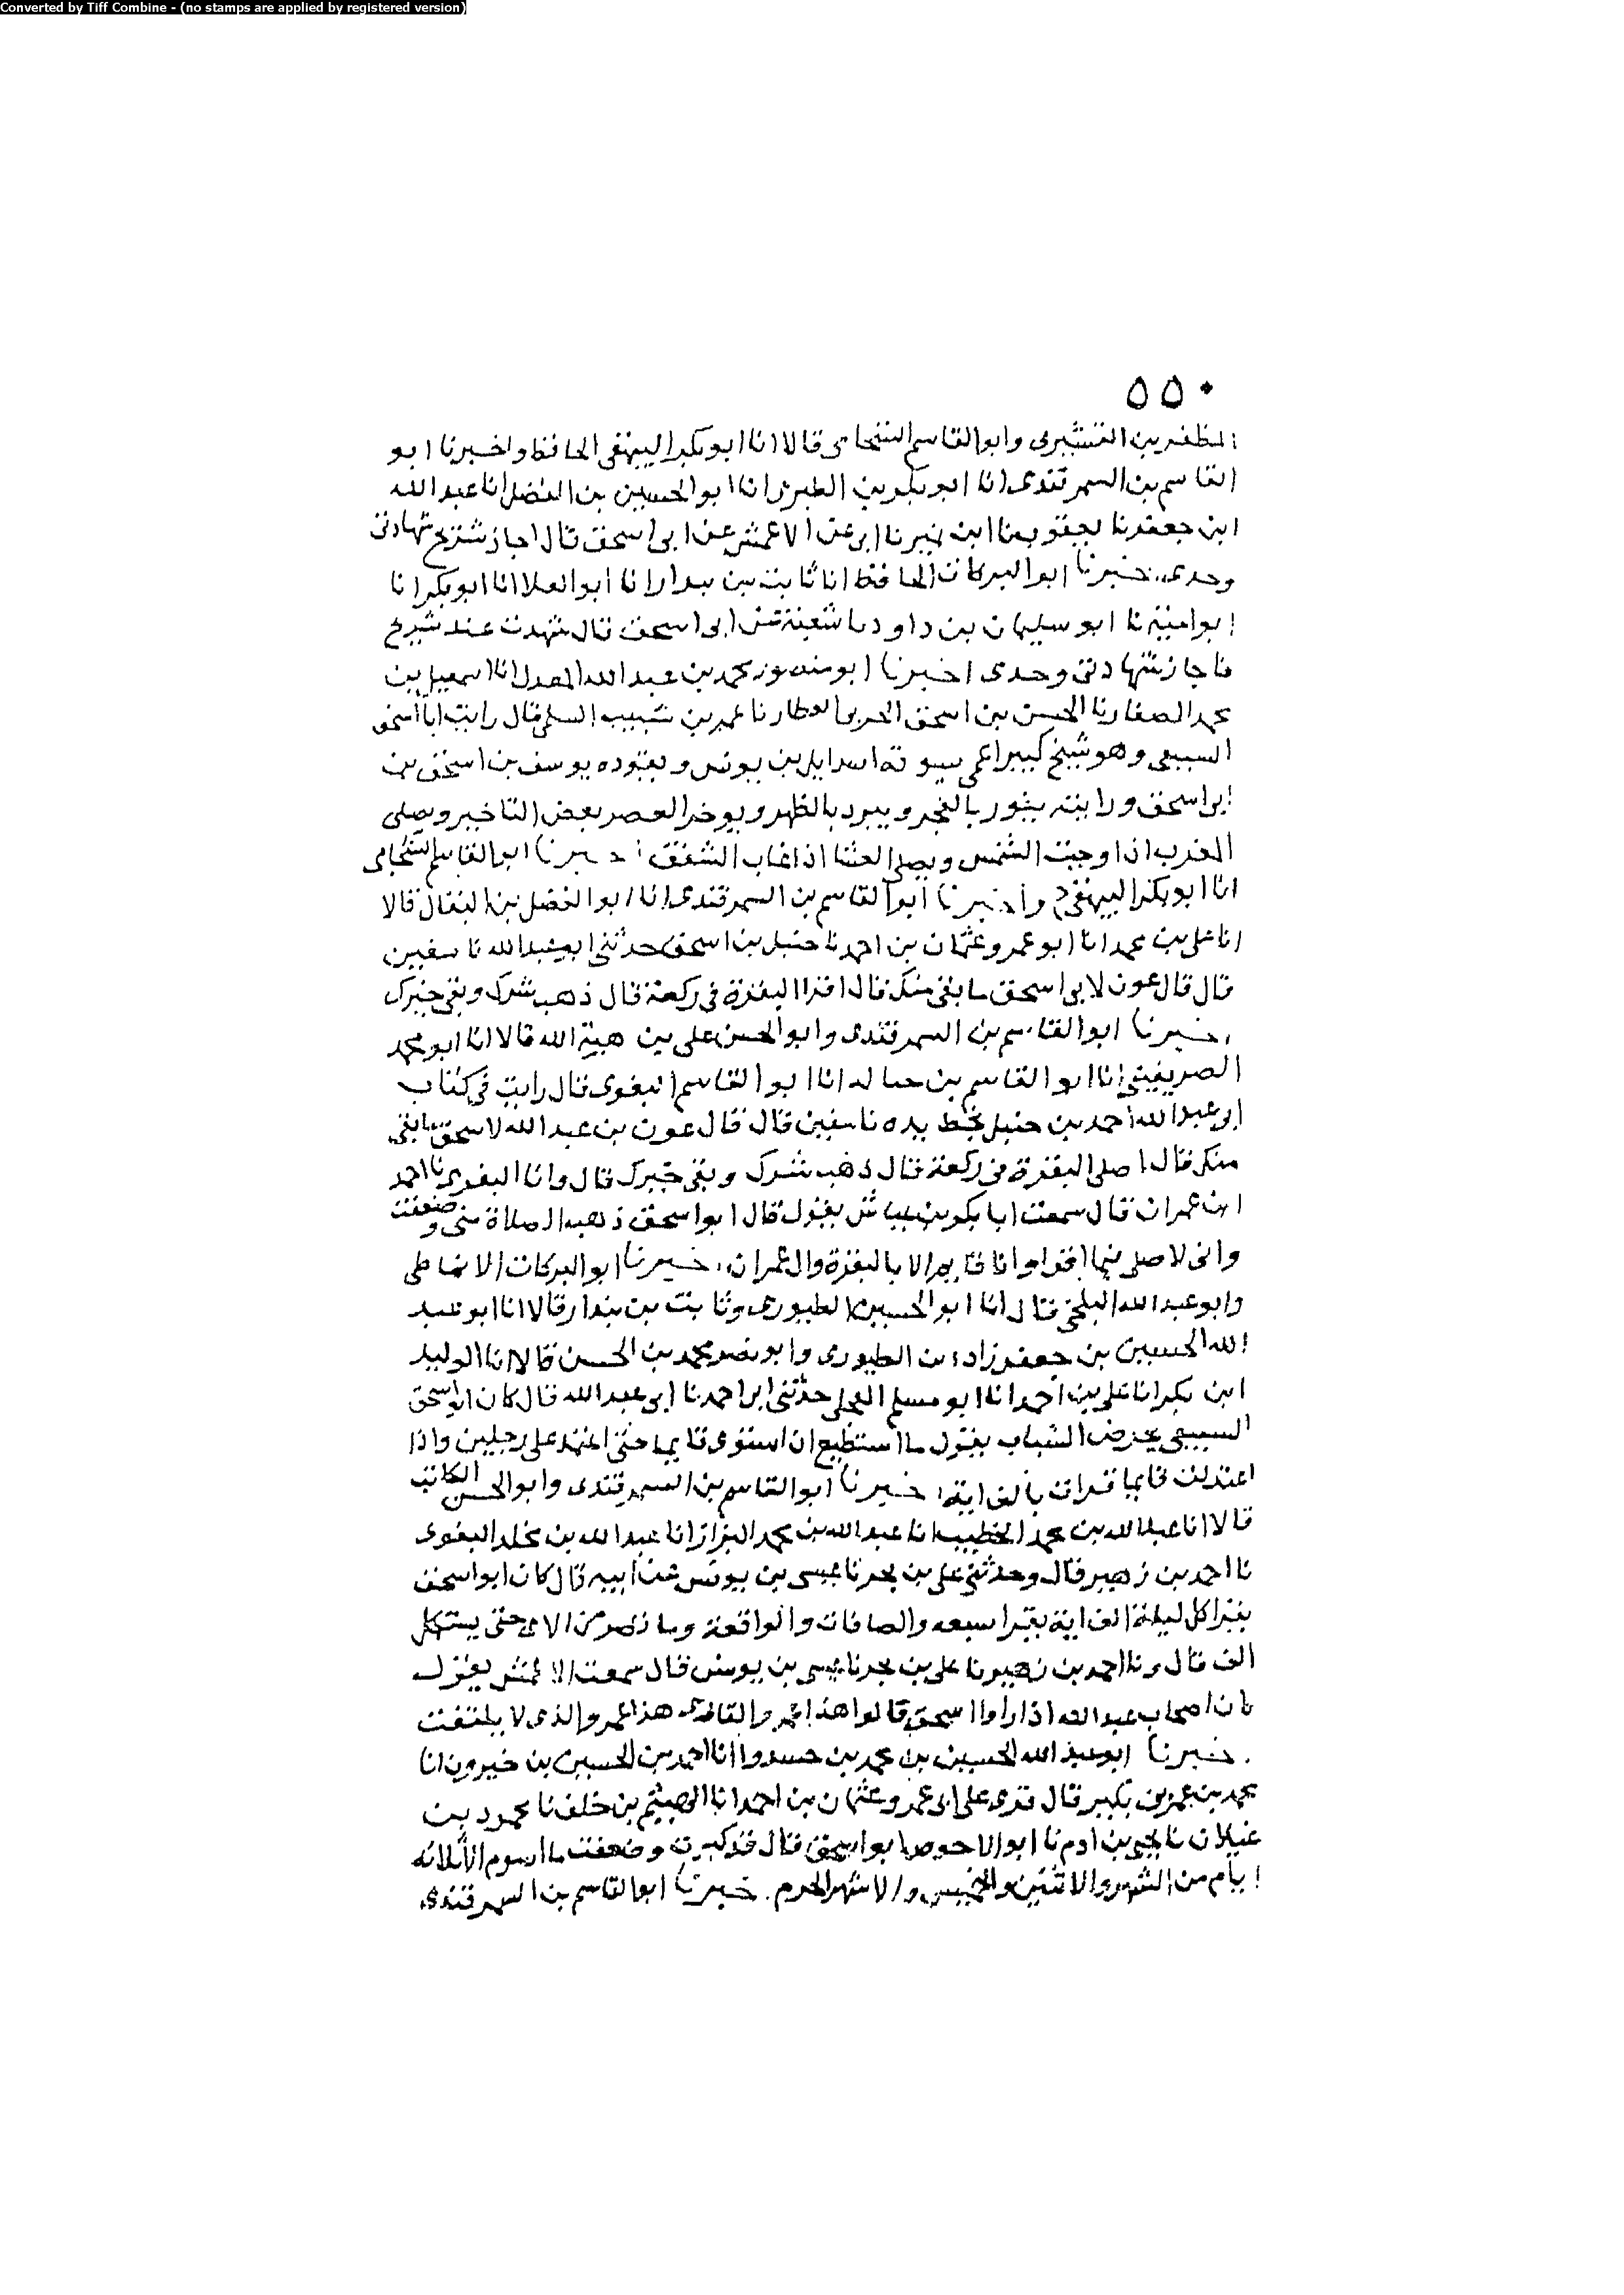 Converted by Tiff Combine - (no stamps are applied by registered version)
٥٥٠
المظفر بن القشيرى وابو القاسم الشحامى قالا انا ابو بكر البيهقى الحافظ واخبرنا ابو
القاسم بن السمرقندى انا ابو بكر بن الطبرى انا ابو الحسين بن الفضل انا عبد الله
ابن جعفر نا يعقوب نا ابن نمير نا ابى عن الاعمش عن ابى اسحق قال اجاز شريح شهادتى
وحدى. خبرنا ابو البركات الحافظ انا ثابت بن بندار انا ابو العلا انا ابو بكر انا
ابو امية نا ابو سليمان بن داود نا شعبة عن ابى اسحق قال شهدت عند شريح
فاجاز شهادتى وحدى اخبرنا ابو منصور محمد بن عبد الله المعدل انا اسمعيل بن
محمد الصفار نا الحسن بن اسحق الحربى العطار نا عمر بن شبيب السلمى قال رايت ابا اسحق
السبيعى وهو شيخ كبير اعمى يسوقه اسرايل بن يونس ويقوده يوسف بن اسحق بن
ابى اسحق ورايته ينور بالفجر ويبرد بالظهر ويوخر العصر بعض التاخير ويصلى
المغرب اذا وجبت الشمس ويصلى العشا اذا غاب الشفق اخبرنا ابو القاسم الشحامى
انا ابو بكر البيهقى ح واخبرنا ابو القاسم بن السمرقندى انا ابو الفضل بن البقال قالا
انا على بن محمد انا ابو عمرو عثمان بن احمد نا حنبل بن اسحق حدثنى ابو عبد الله نا سفين
قال قال عون لابى اسحق ما بقى منك قال اقرا البقرة فى ركعة قال ذهب شرك وبقى خيرك
اخبرنا ابو القاسم بن السمرقندى وابو الحسن على بن هبة الله قالا انا ابو محمد
الصريفينى انا ابو القاسم بن حبابه انا ابو القاسم البغوى قال رايت فى كتاب
ابى عبد الله احمد بن حنبل بخط يده نا سفين قال قال عون بن عبد الله لاسحق ما بقى
منك قال اصلى البقرة فى ركعة قال ذهب شرك وبقى خيرك قال وانا البغوى نا احمد
ابن عمران قال سمعت ابا بكر بن عياش يقول قال ابو اسحق ذهب الصلاة منى وضعفت
وانى لاصلى فما اقرا وانا قايم الا بالبقرة وال عمران. خبرنا ابو البركات الانماطى
وابو عبد الله البلخى قال انا ابو الحسين الطيورى وثابت بن بندار قالا انا ابو عبد
الله الحسين بن جعفر زاد ابن الطيورى وابو نصر محمد بن الحسن قالا انا الوليد
ابن بكر انا على بن احمد انا ابو مسلم العجلى حدثنى ابى احمد نا ابى عبد الله قال كان ابو اسحق
السبيعى يحرض الشباب يقول ما استطيع ان استوى قايما حتى اعتمد على رجلين واذا
اعتدلت قايما قرات بالف اية. خبرنا ابو القاسم بن السمرقندى وابو الحسن الكاتب
قالا انا عبد الله بن محمد الخطيب انا عبد الله بن محمد البزاز انا عبد الله بن مخلد البغوى
نا احمد بن زهير قال وحدثنى على بن بحر نا عيسى بن يونس عن ابيه قال كان ابو اسحق
يقرا كل ليلة الف اية يقرا سبعه والصافات والواقعة وما قصر من الاى حتى يستكمل
الف قال ونا احمد بن زهير نا على بن بحر نا عيسى بن يونس قال سمعت الاعمش يقول
كان اصحاب عبد الله اذا راوا اسحق قالوا هذا عمرو القارى هذا عمرو الذى لا يلتفت
. خبرنا ابو عبد الله الحسين بن محمد بن خسرو انا احمد بن الحسين بن خيرون انا
محمد بن عمر بن بكير قال قرى على ابى عمرو عثمان بن احمد انا الهيثم بن خلف نا محمود بن
غيلان نا يحيى بن ادم نا ابو الاحوص ابو اسحق قال قد كبرت وضعفت ما اصوم الا ثلاثه
ايام من الشهر والاثنين والخميس والاشهر الحرم. خبرنا ابو القاسم بن السمرقندى